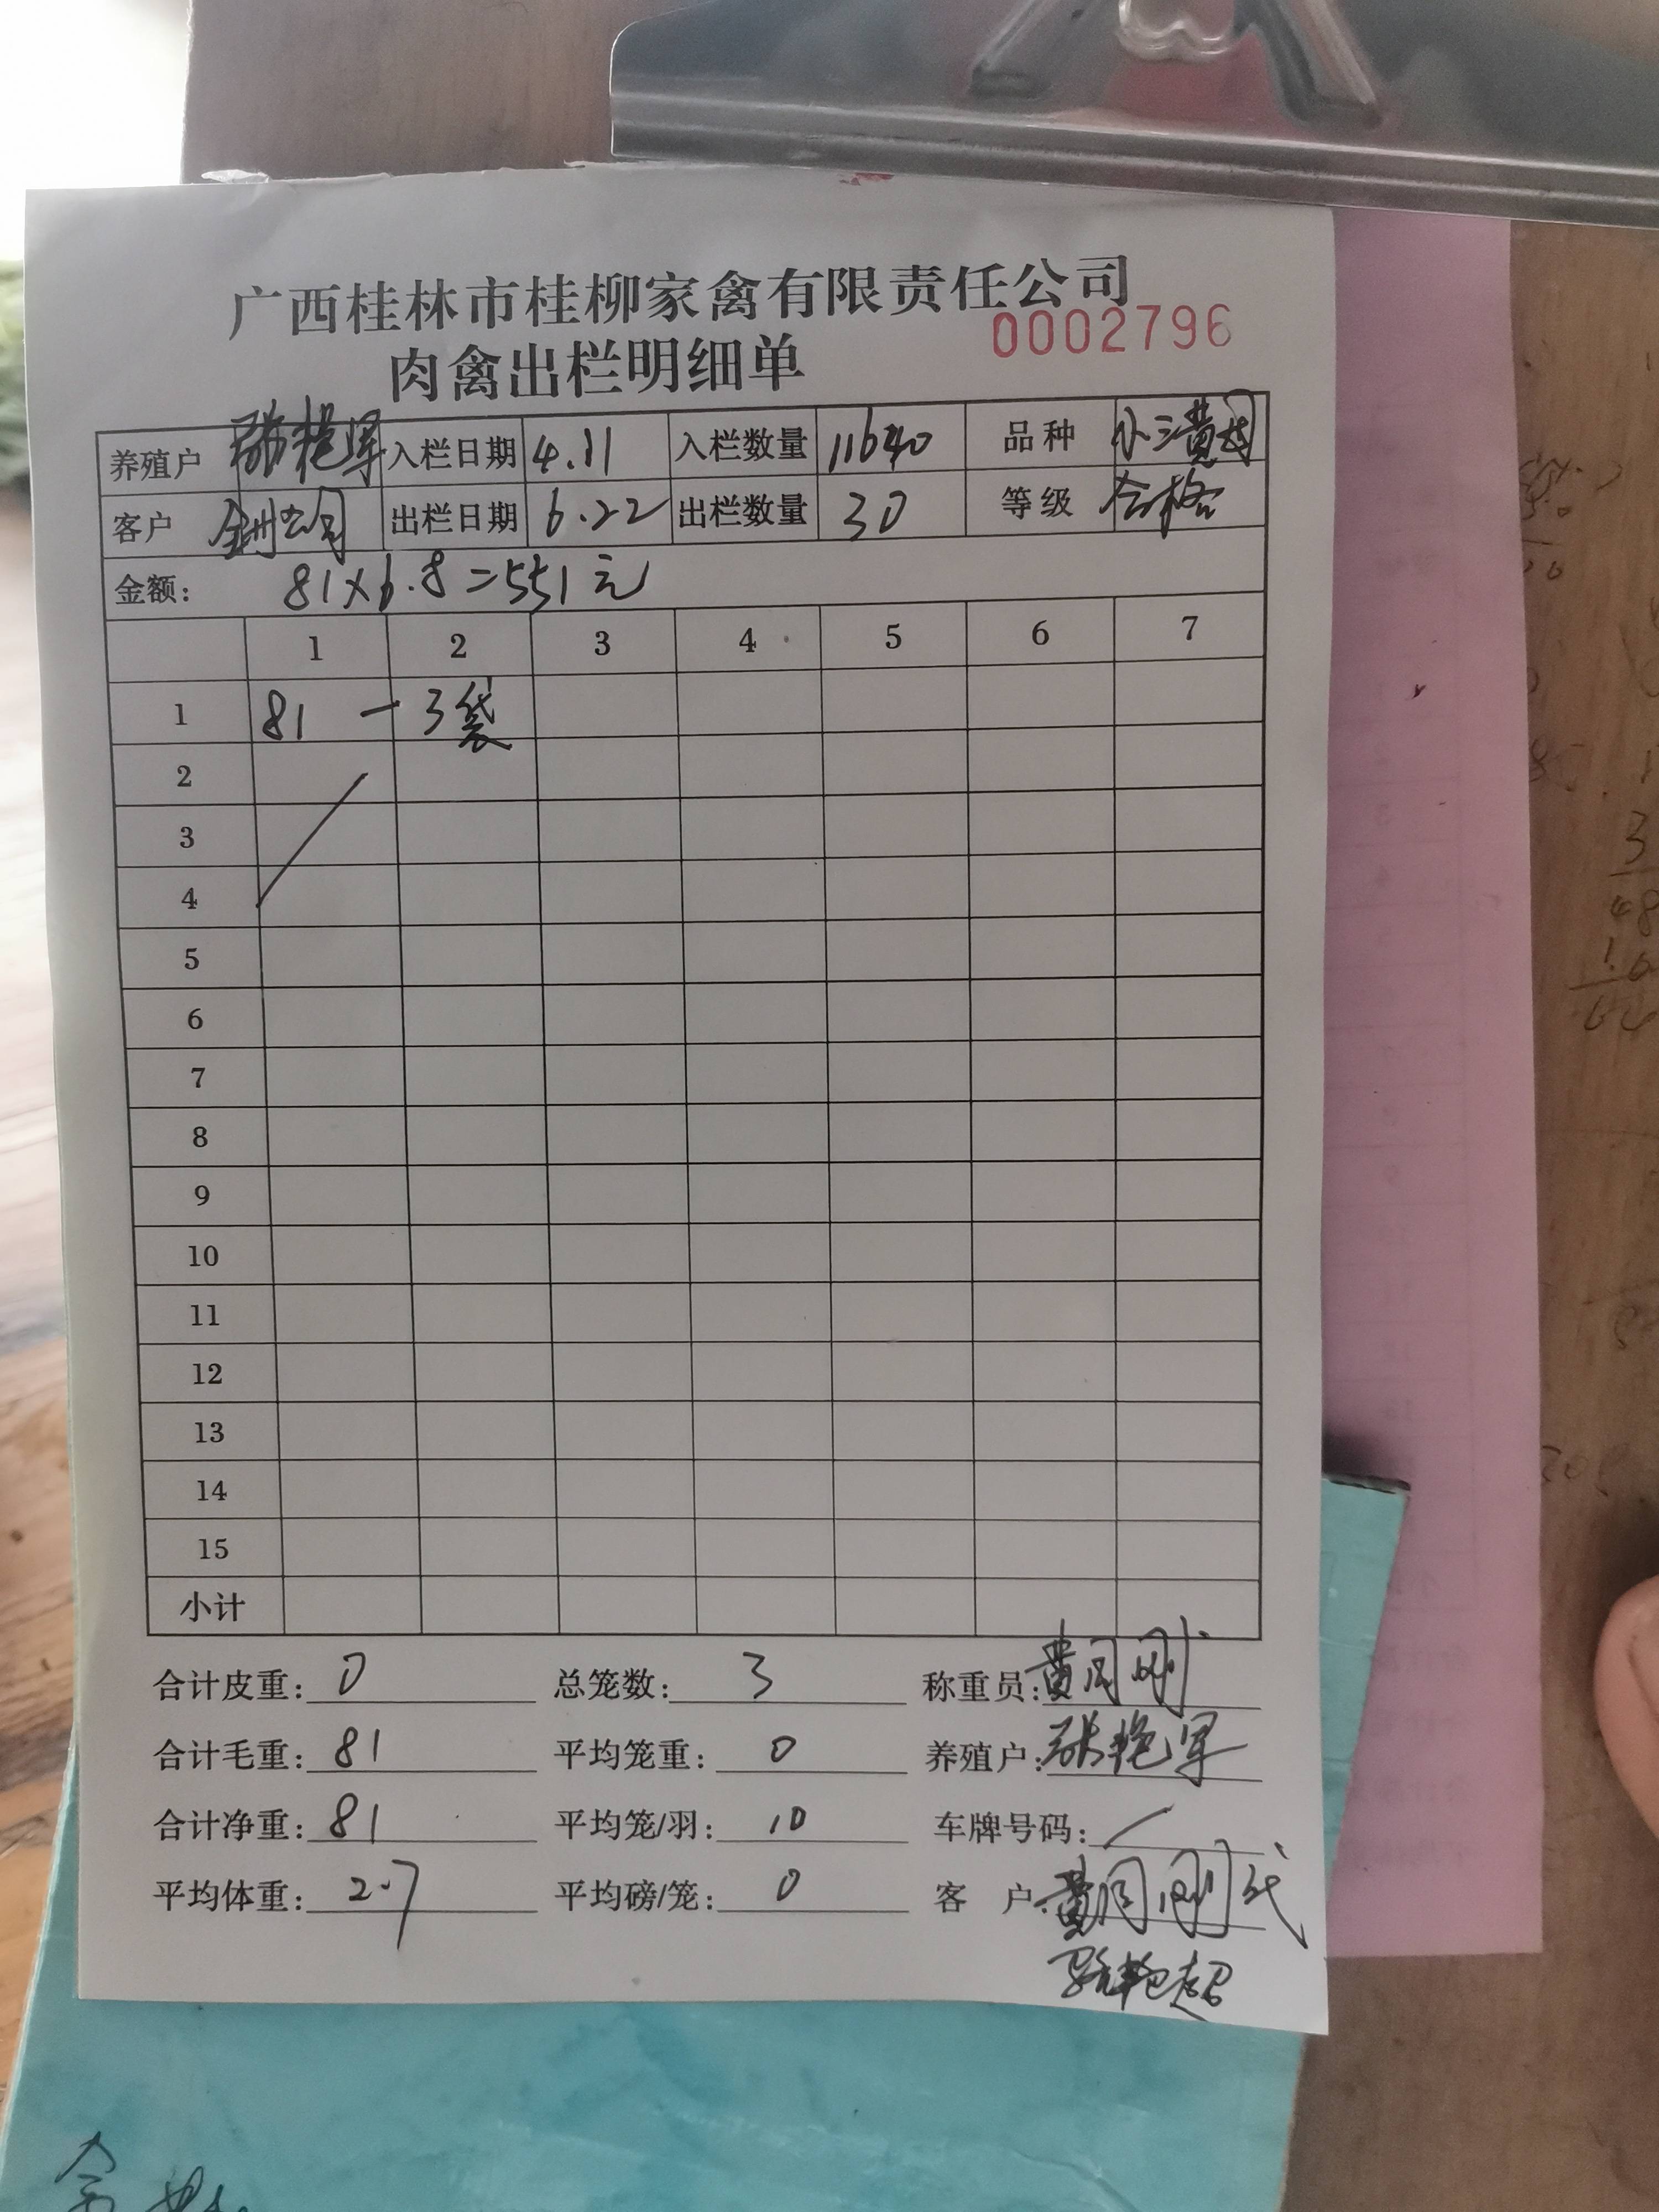 广西桂林市桂柳家禽有限责任公司
0002796
肉禽出栏明细单
养殖户 张艳军 入栏日期 4.11 入栏数量 11640 品种 小三黄
客户 全州公司 出栏日期 6.22 出栏数量 30 等级 合格
金额： 81×6.8=551元
1 2 3 4 5 6 7
1 81 — 3袋
2
3
4
5
6
7
8
9
10
11
12
13
14
15
小计
合计皮重: 0 总笼数: 3 称重员: 黄同刚
合计毛重: 81 平均笼重: 0 养殖户: 张艳军
合计净重: 81 平均笼/羽: 10 车牌号码: /
平均体重: 2.7 平均磅/笼: 0 客 户: 黄同刚代